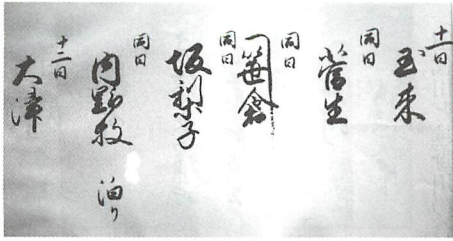 十一日
玉来
同日
菅生
同日
笹倉
同日
坂梨子
同日
内野牧 泊り
十二日
大津